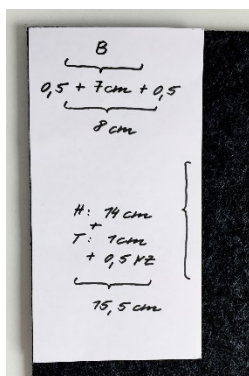 B
0,5 + 7cm + 0,5
8cm
H: 14cm
+
T: 1cm
+ 0,5 NZ
15,5cm